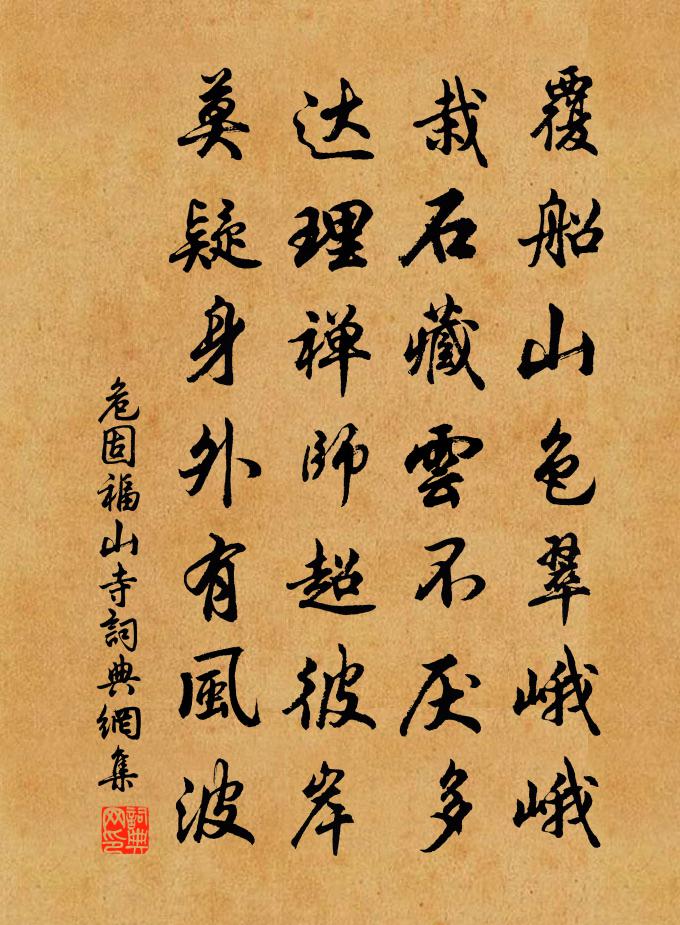 覆船山色翠峨峨
栽石藏雲不厌多
达理禅師超彼岸
莫疑身外有風波
危固福山寺詞典網集
詞典网印